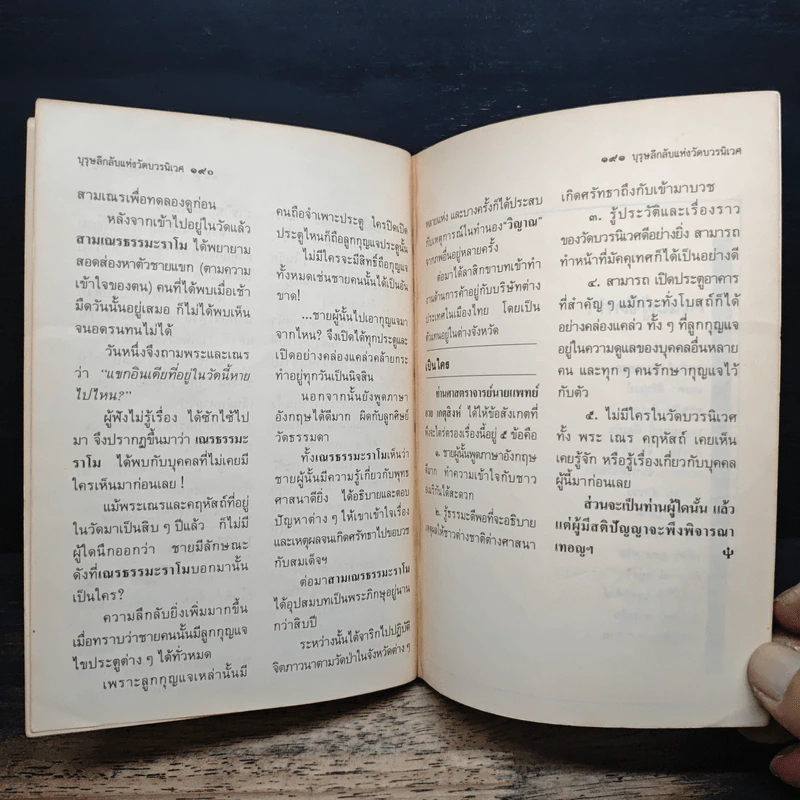 บุรุษลึกลับแห่งวัดบวรนิเวศ ๑๙๐
สามเณรเพื่อทดลองดูก่อน
หลังจากเข้าไปอยู่ในวัดแล้ว
สามเณรธรรมะราโม ได้พยายาม
สอดส่องหาตัวชายแขก (ตามความ
เข้าใจของตน) คนที่ได้พบเมื่อเช้า
มืดวันนั้นอยู่เสมอ ก็ไม่ได้พบเห็น
จนอดรนทนไม่ได้
วันหนึ่งจึงถามพระและเณร
ว่า "แขกอินเดียที่อยู่ในวัดนี้หาย
ไปไหน?"
ผู้ฟังไม่รู้เรื่อง ได้ซักไซ้ไป
มา จึงปรากฏขึ้นมาว่า เณรธรรมะ
ราโม ได้พบกับบุคคลที่ไม่เคยมี
ใครเห็นมาก่อนเลย !
แม้พระเณรและคฤหัสถ์ที่อยู่
ในวัดมาเป็นสิบ ๆ ปีแล้ว ก็ไม่มี
ผู้ใดนึกออกว่า ชายมีลักษณะ
ดังที่เณรธรรมะราโมบอกมานั้น
เป็นใคร?
ความลึกลับยิ่งเพิ่มมากขึ้น
เมื่อทราบว่าชายคนนั้นมีลูกกุญแจ
ไขประตูต่าง ๆ ได้ทั่วหมด
เพราะลูกกุญแจเหล่านั้นมี
คนถือจำเพาะประตู ใครปิดเปิด
ประตูไหนก็ถือลูกกุญแจประตูนั้น
ไม่มีใครจะมีสิทธิ์ถือกุญแจ
ทั้งหมดเช่นชายคนนั้นได้เป็นอัน
ขาด!
...ชายผู้นั้นไปเอากุญแจมา
จากไหน? จึงเปิดได้ทุกประตูและ
เปิดอย่างคล่องแคล่วคล้ายกระ
ทำอยู่ทุกวันเป็นนิจสิน
นอกจากนั้นยังพูดภาษา
อังกฤษได้ดีมาก ผิดกับลูกศิษย์
วัดธรรมดา
ทั้งเณรธรรมะราโมเห็นว่า
ชายผู้นั้นมีความรู้เกี่ยวกับพุทธ
ศาสนาดียิ่ง ได้อธิบายและตอบ
ปัญหาต่าง ๆ ให้เขาเข้าใจเรื่อง
และเหตุผลจนเกิดศรัทธาไปขอบวช
กับสมเด็จฯ
ต่อมาสามเณรธรรมะราโม
ได้อุปสมบทเป็นพระภิกษุอยู่นาน
กว่าสิบปี
ระหว่างนั้นได้จาริกไปปฏิบัติ
จิตภาวนาตามวัดป่าในจังหวัดต่าง ๆ
๑๙๑ บุรุษลึกลับแห่งวัดบวรนิเวศ
หลายแห่ง และบางครั้งก็ได้ประสบ
กับเหตุการณ์ในทำนอง"วิญาณ"
จากภพอื่นอยู่หลายครั้ง
ต่อมาได้ลาสิกขาบทเข้าทำ
งานด้านการค้าอยู่กับบริษัทต่าง
ประเทศในเมืองไทย โดยเป็น
ตัวแทนอยู่ในต่างจังหวัด
เป็นใคร
ท่านศาสตราจารย์นายแพทย์
อวย เกตุสิงห์ ได้ให้ข้อสังเกตที่
พึงใคร่ครองเรื่องนี้อยู่ ๕ ข้อคือ
๑. ชายผู้นั้นพูดภาษาอังกฤษ
ดีมาก ทำความเข้าใจกับชาว
อเมริกันได้สะดวก
๒. รู้ธรรมะดีพอที่จะอธิบาย
เหตุผลให้ชาวต่างชาติต่างศาสนา
เกิดศรัทธาถึงกับเข้ามาบวช
๓. รู้ประวัติและเรื่องราว
ของวัดบวรนิเวศดีอย่างยิ่ง สามารถ
ทำหน้าที่มัคคุเทศก์ได้เป็นอย่างดี
๔. สามารถ เปิดประตูอาคาร
ที่สำคัญ ๆ แม้กระทั่งโบสถ์ก็ได้
อย่างคล่องแคล่ว ทั้ง ๆ ที่ลูกกุญแจ
อยู่ในความดูแลของบุคคลอื่นหลาย
คน และทุก ๆ คนรักษากุญแจไว้
กับตัว
๕. ไม่มีใครในวัดบวรนิเวศ
ทั้ง พระ เณร คฤหัสถ์ เคยเห็น
เคยรู้จัก หรือรู้เรื่องเกี่ยวกับบุคคล
ผู้นี้มาก่อนเลย
ส่วนจะเป็นท่านผู้ใดนั้น แล้ว
แต่ผู้มีสติปัญญาจะพึงพิจารณา
เทอญฯ